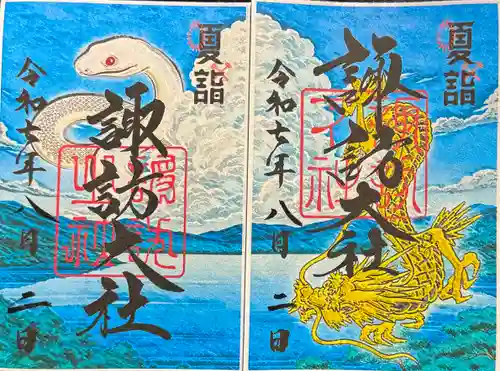 夏詣
諏訪大社
令和七年八月二日
夏詣
諏訪大社
令和七年八月二日